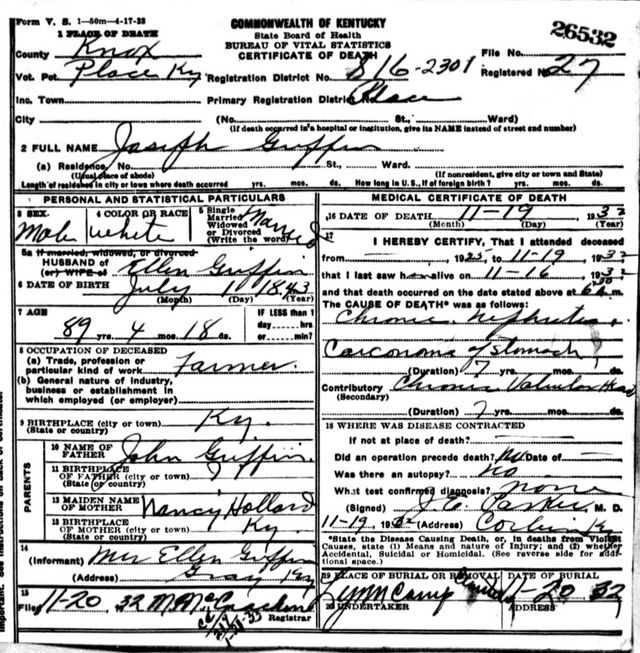 Form V. S. 1-50m-4-17-28
COMMONWEALTH OF KENTUCKY
State Board of Health
BUREAU OF VITAL STATISTICS
CERTIFICATE OF DEATH
26532
1 PLACE OF DEATH
County Knox
File No.
Vot. Pct. Place Ky Registration District No. 816-2301 Registered No. 27
Inc. Town Primary Registration District Place
City (No. St., Ward)
(If death occurred in a hospital or institution, give its NAME instead of street and number)
2 FULL NAME Joseph Griffin
(a) Residence, No. St., Ward.
(Usual place of abode) (If nonresident, give city or town and State)
Length of residence in city or town where death occurred yrs. mos. ds. How long in U. S., if of foreign birth? yrs. mos. ds.
PERSONAL AND STATISTICAL PARTICULARS
3 SEX. Male
4 COLOR OR RACE white
5 Single Married Widowed or Divorced (Write the word) Married
5a If married, widowed, or divorced
HUSBAND of
(or) WIFE of Ellen Griffin
6 DATE OF BIRTH July 1 1843
(Month) (Day) (Year)
7 AGE 89 yrs. 4 mos. 18 ds.
IF LESS than 1 day hrs. or min?
8 OCCUPATION OF DECEASED
(a) Trade, profession or particular kind of work Farmer.
(b) General nature of industry, business or establishment in which employed (or employer)
9 BIRTHPLACE (city or town) Ky.
(State or country)
PARENTS
10 NAME OF FATHER John Griffin
11 BIRTHPLACE OF FATHER (city or town) ?
(State or country)
12 MAIDEN NAME OF MOTHER Nancy Hollard
13 BIRTHPLACE OF MOTHER (city or town) Ky
(State or country)
14
(Informant) Mrs Ellen Griffin
(Address) Gray Ky
15
Filed 11-20 32
Registrar
MEDICAL CERTIFICATE OF DEATH
16 DATE OF DEATH 11-19 1932
(Month) (Day) (Year)
17
I HEREBY CERTIFY, That I attended deceased
from 1925, to 11-19, 1932
that I last saw h alive on 11-16, 1932
and that death occurred on the date stated above at m.
The CAUSE OF DEATH* was as follows:
Chronic Nephritis,
Carconoma of Stomach
(Duration) 7 yrs. mos. ds.
Contributory Chronic Valvular Head
(Secondary)
(Duration) 7 yrs. mos. ds.
18 WHERE WAS DISEASE CONTRACTED
If not at place of death?
Did an operation precede death? No Date of
Was there an autopsy? no
What test confirmed diagnosis? none
(Signed) J. C. Parker M. D.
11-19 1932 (Address) Corbin Ky
*State the Disease Causing Death, or, in deaths from Violent Causes, state (1) Means and nature of Injury; and (2) whether Accidental, Suicidal or Homicidal. (See reverse side for additional space.)
19 PLACE OF BURIAL OR REMOVAL Lynn Camp
DATE OF BURIAL 11-20 32
20 UNDERTAKER
ADDRESS